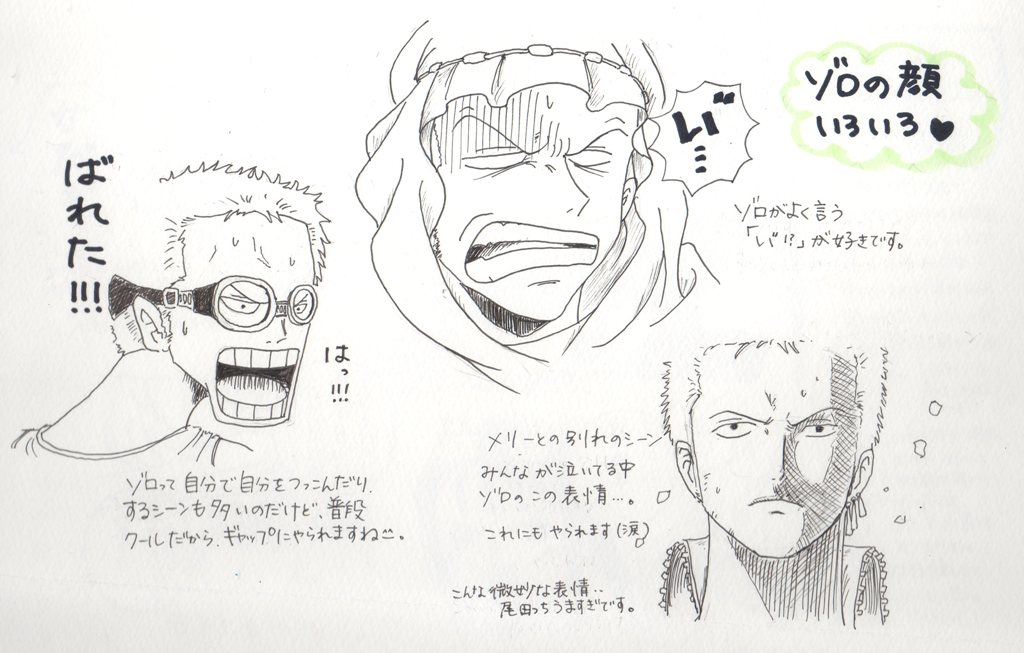 ゾロの顔
いろいろ♥
い゛…
ゾロがよく言う
「い゛!?」が好きです。
ばれた!!!
はっ!!!
ゾロって自分で自分をつっこんだり、
するシーンも多いのだけど、普段
クールだから、ギャップにやられますね。
メリーとの別れのシーン
みんなが泣いてる中
ゾロのこの表情…。
これにもやられます(涙)
こんな微妙な表情‥
尾田っちうますぎです。